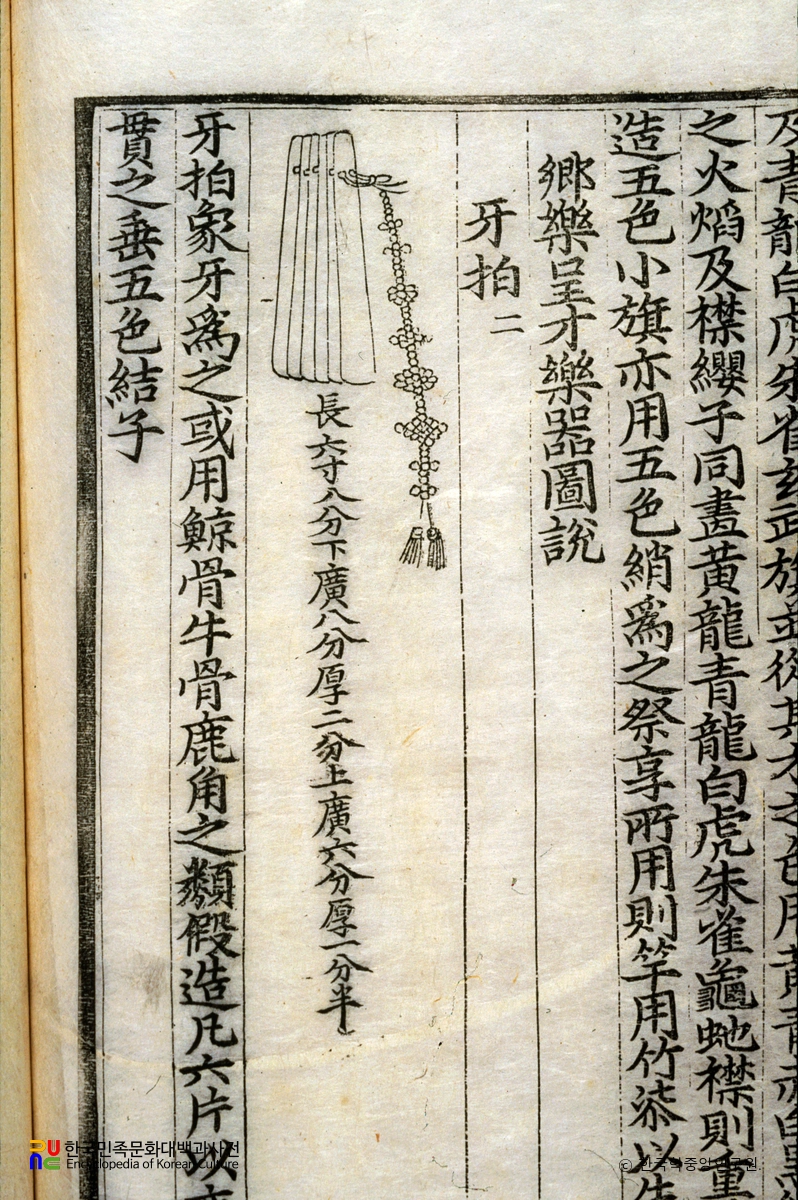 及青龍白虎朱雀玄武旗並從其方之色用黃青赤白黑
之火焰及襟纓子同畫黃龍青龍白虎朱雀龜虵襟則
造五色小旗亦用五色綃爲之祭享所用則竿用竹漆以朱
鄉樂呈才樂器圖說
牙拍二
長六寸八分下廣八分厚二分上廣六分厚一分半
牙拍象牙爲之或用鯨骨牛骨鹿角之類假造凡六片以
貫之垂五色結子
한국민족문화대백과사전
Encyclopedia of Korean Culture
© 한국학중앙연구원.